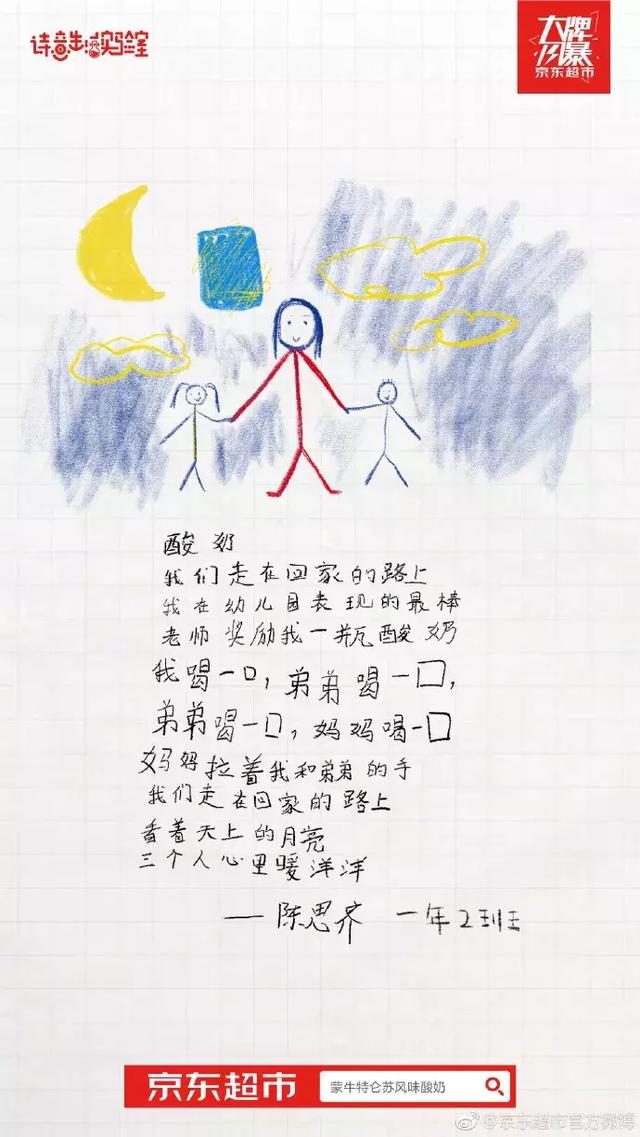 诗意生活实验室
大牌风暴
京东超市
酸奶
我们走在回家的路上
我在幼儿园表现的最棒
老师奖励我一瓶酸奶
我喝一口，弟弟喝一口，
弟弟喝一口，妈妈喝一口
妈妈拉着我和弟弟的手
我们走在回家的路上
看着天上的月亮
三个人心里暖洋洋
——陈思齐 一年2班
京东超市 蒙牛特仑苏风味酸奶
@京东超市官方微博